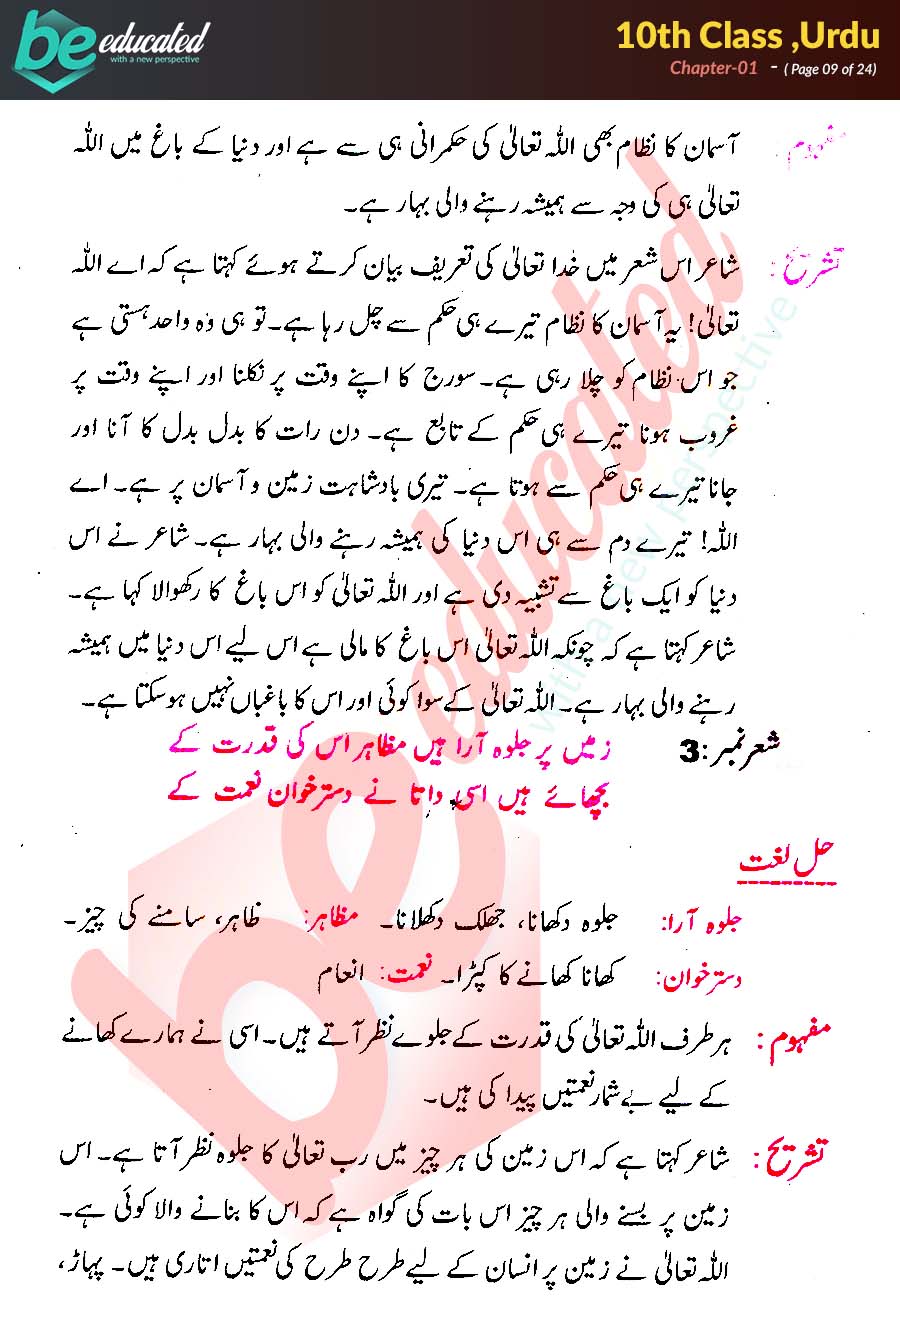 be educated
with a new perspective
10th Class ,Urdu
Chapter-01 - ( Page 09 of 24)
مفہوم آسمان کا نظام بھی اللہ تعالیٰ کی حکمرانی ہی سے ہے اور دنیا کے باغ میں اللہ
تعالیٰ ہی کی وجہ سے ہمیشہ رہنے والی بہار ہے۔
تشریح: شاعر اس شعر میں خدا تعالیٰ کی تعریف بیان کرتے ہوئے کہتا ہے کہ اے اللہ
تعالیٰ! یہ آسمان کا نظام تیرے ہی حکم سے چل رہا ہے۔ تو ہی وہ واحد ہستی ہے
جو اس نظام کو چلا رہی ہے۔ سورج کا اپنے وقت پر نکلنا اور اپنے وقت پر
غروب ہونا تیرے ہی حکم کے تابع ہے۔ دن رات کا بدل بدل کا آنا اور
جانا تیرے ہی حکم سے ہوتا ہے۔ تیری بادشاہت زمین و آسمان پر ہے۔ اے
اللہ! تیرے دم سے ہی اس دنیا کی ہمیشہ رہنے والی بہار ہے۔ شاعر نے اس
دنیا کو ایک باغ سے تشبیہ دی ہے اور اللہ تعالیٰ کو اس باغ کا رکھوالا کہا ہے۔
شاعر کہتا ہے کہ چونکہ اللہ تعالیٰ اس باغ کا مالی ہے اس لیے اس دنیا میں ہمیشہ
رہنے والی بہار ہے۔ اللہ تعالیٰ کے سوا کوئی اور اس کا باغباں نہیں ہو سکتا ہے۔
شعر نمبر:3 زمیں پر جلوہ آرا ہیں مظاہر اس کی قدرت کے
بچھائے ہیں اسی داتا نے دسترخوان نعمت کے
حل لغت
جلوہ آرا: جلوہ دکھانا، جھلک دکھلانا۔ مظاہر: ظاہر، سامنے کی چیز۔
دسترخوان: کھانا کھانے کا کپڑا۔ نعمت: انعام
مفہوم: ہر طرف اللہ تعالیٰ کی قدرت کے جلوے نظر آتے ہیں۔ اسی نے ہمارے کھانے
کے لیے بے شمار نعمتیں پیدا کی ہیں۔
تشریح: شاعر کہتا ہے کہ اس زمین کی ہر چیز میں رب تعالیٰ کا جلوہ نظر آتا ہے۔ اس
زمین پر بسنے والی ہر چیز اس بات کی گواہ ہے کہ اس کا بنانے والا کوئی ہے۔
اللہ تعالیٰ نے زمین پر انسان کے لیے طرح طرح کی نعمتیں اتاری ہیں۔ پہاڑ،
be educated
with a new perspective